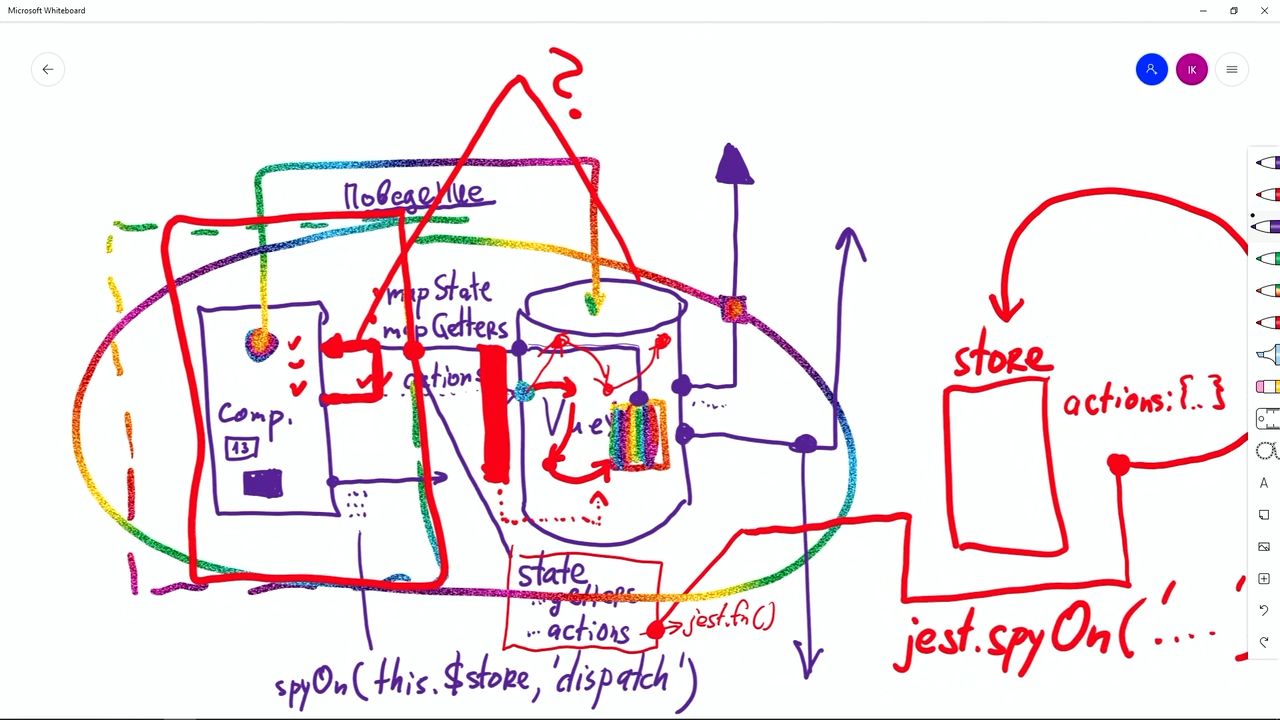 Microsoft Whiteboard
IK
?
Поведение
mapState
mapGetters
actions
Vuex
Comp.
13
store
actions:{..}
state
... getters
... actions
jest.fn()
jest.spyOn('....'
spyOn(this.$store, 'dispatch')
A